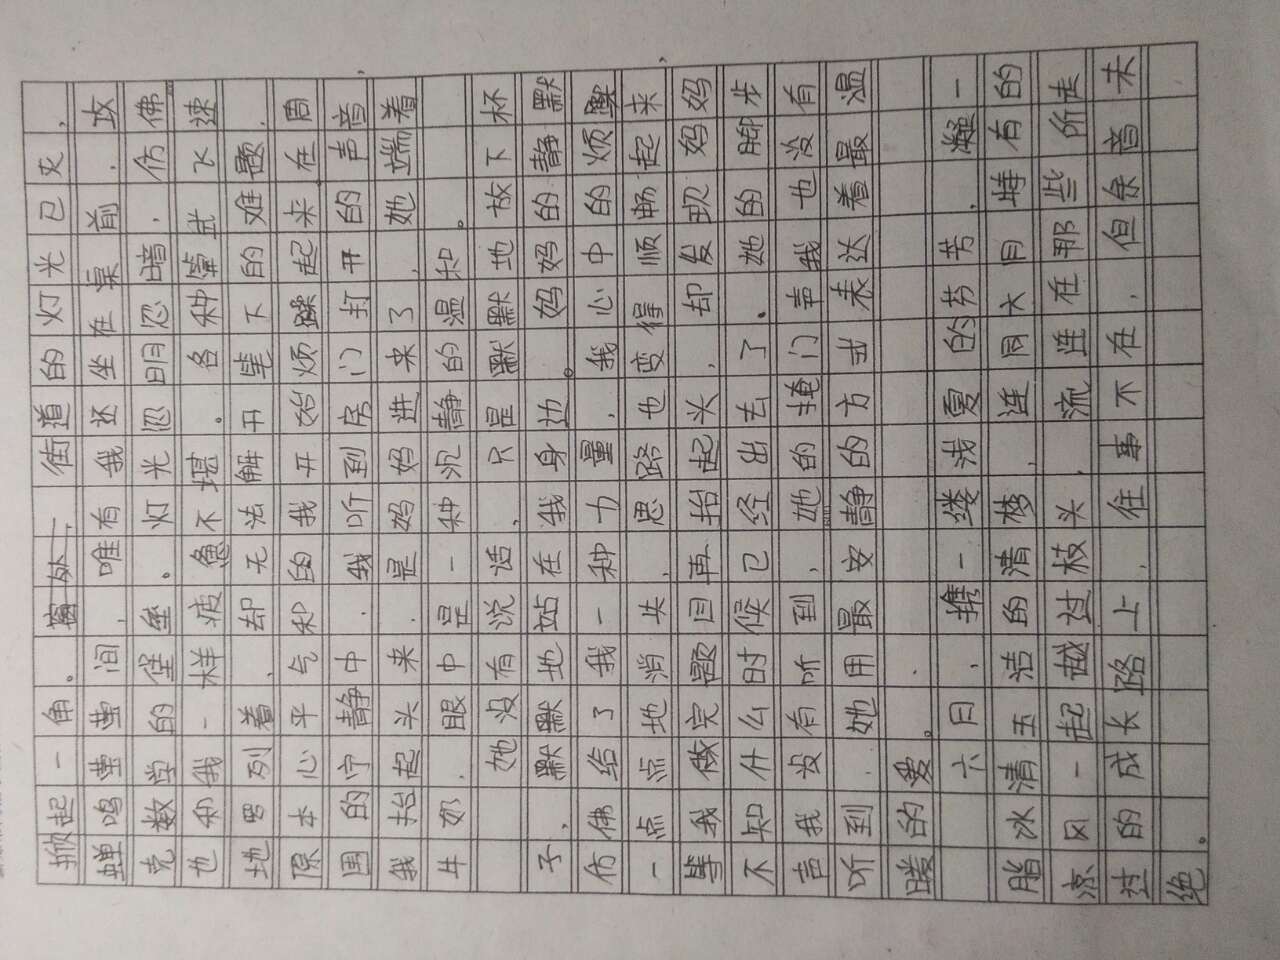 掀起一角。街道的灯光已灭，
蝉鸣萤萤间，唯有我还坐在桌前，攻
克数学的堡垒。灯光忽明忽暗，仿佛
也和我一样疲惫不堪。各种算式飞速
地罗列着，却无法解开笔下的难题。
原本心平气和的我开始烦躁起来在周
围的宁静中，我听到房门打开的声音，
我抬起头来，是妈妈进来了，她端着
牛奶，眼中是一种沉静的温和。
她没有说话，只是默默地放下杯
子，默默地站在我身边。妈妈的静默
仿佛给了我一种力量，我心中的烦躁
一点点地消失，思路也变得顺畅起来，
等我做完题目再抬起头，却发现妈妈
不知什么时候已经出去了。她的脚步
声我没有听到，她的掩门声我也没有
听到，她用最安静的方式表达着最温
暖的爱。
六日，携一缕浅夏的芬芳，凝一
脂冰清玉洁的清梦，连同大同特有的
凉风一起越过枝头，流连在那些所走
过的成长路上，往事不在，但余音未
绝。